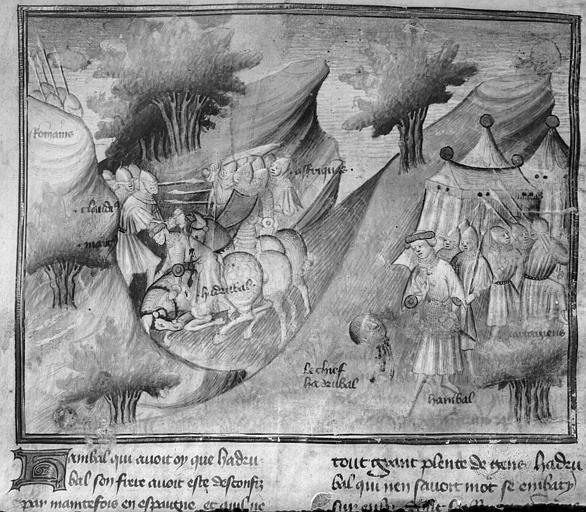 Romains
affriquās
claudi9
marc9
hasdrubal
le chief
hadrubal
hanibal
Hanibal qui avoit oy que hadru
bal son frere avoit este desconfiz
par maintefois en espaigne et quil ne
tout grant plente de gens hadru
bal qui nen savoit mot se embaty